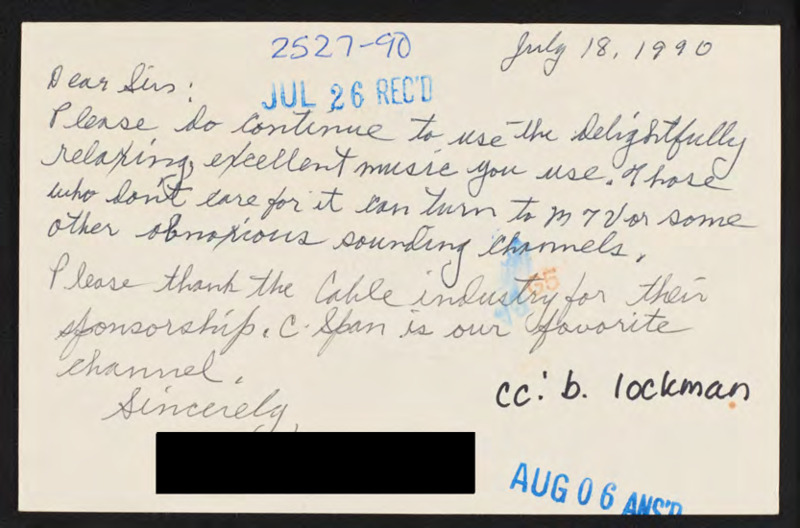 2527-90
July 18, 1990
Dear Sirs:
JUL 26 REC'D
Please do continue to use the delightfully
relaxing, excellent music you use. Those
who don't care for it can turn to MTV or some
other obnoxious sounding channels.
Please thank the Cable industry for their
sponsorship. C-Span is our favorite
channel.
cc: b. lockman
Sincerely,
AUG 06 ANS'D